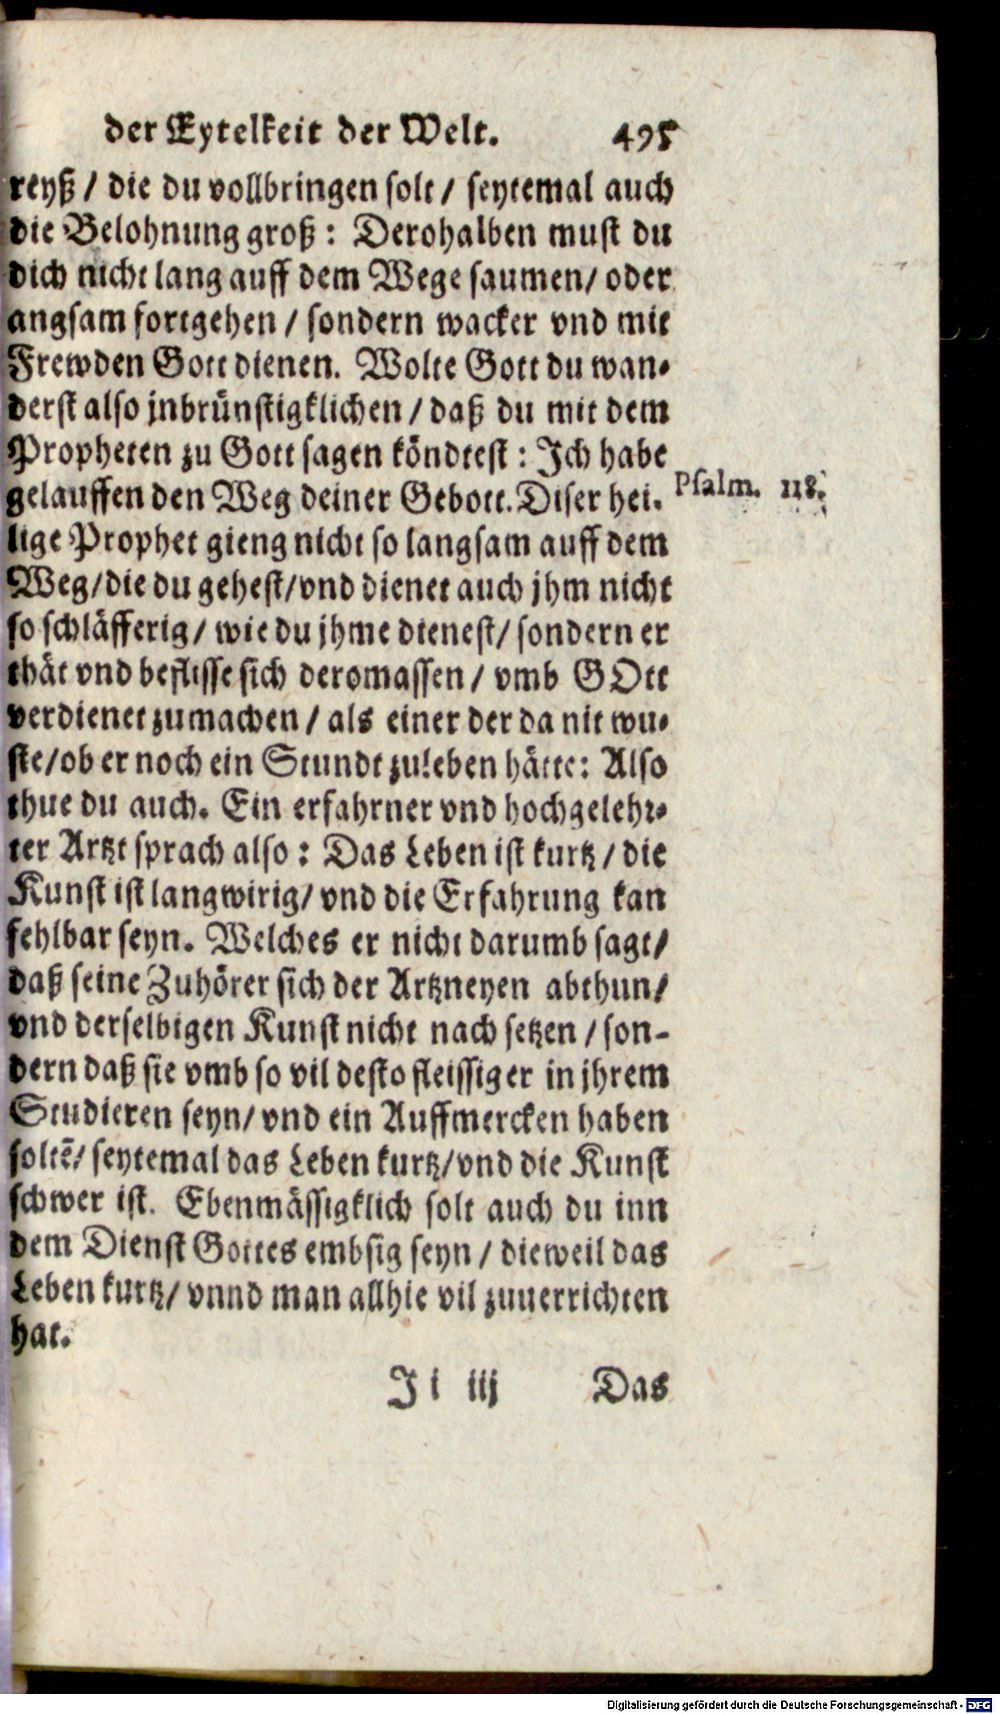 der Eytelkeit der Welt. 495
reyß / die du vollbringen solt / seytemal auch
die Belohnung groß : Derohalben must du
dich nicht lang auff dem Wege saumen / oder
angsam fortgehen / sondern wacker vnd mit
Frewden Gott dienen. Wolte Gott du wan-
derst also jnbrünstigklichen / daß du mit dem
Propheten zu Gott sagen köndtest : Ich habe
gelauffen den Weg deiner Gebott. Diser hei- Psalm. 118.
lige Prophet gieng nicht so langsam auff dem
Weg / die du gehest / vnd dienet auch jhm nicht
so schläfferig / wie du jhme dienest / sondern er
thät vnd beflisse sich deromassen / vmb GOtt
verdienet zumachen / als einer der da nit wu-
ste / ob er noch ein Stundt zuleben hätte : Also
thue du auch. Ein erfahrner vnd hochgelehr-
ter Artzt sprach also : Das Leben ist kurtz / die
Kunst ist langwirig / vnd die Erfahrung kan
fehlbar seyn. Welches er nicht darumb sagt /
daß seine Zuhörer sich der Artzneyen abthun /
vnd derselbigen Kunst nicht nach setzen / son-
dern daß sie vmb so vil desto fleissiger in jhrem
Studieren seyn / vnd ein Auffmercken haben
soltē / seytemal das Leben kurtz / vnd die Kunst
schwer ist. Ebenmässigklich solt auch du inn
dem Dienst Gottes embsig seyn / dieweil das
Leben kurtz / vnnd man allhie vil zuuerrichten
hat.
Ii iij Das
Digitalisierung gefördert durch die Deutsche Forschungsgemeinschaft - DFG